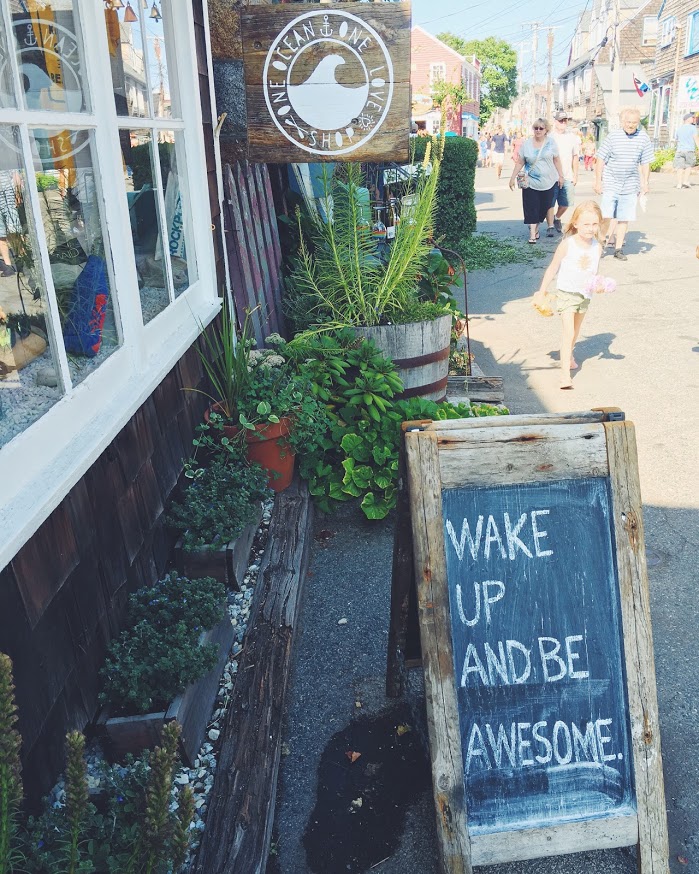 ONE OCEAN ONE LOVE
SHOP
WAKE
UP
AND BE
AWESOME.